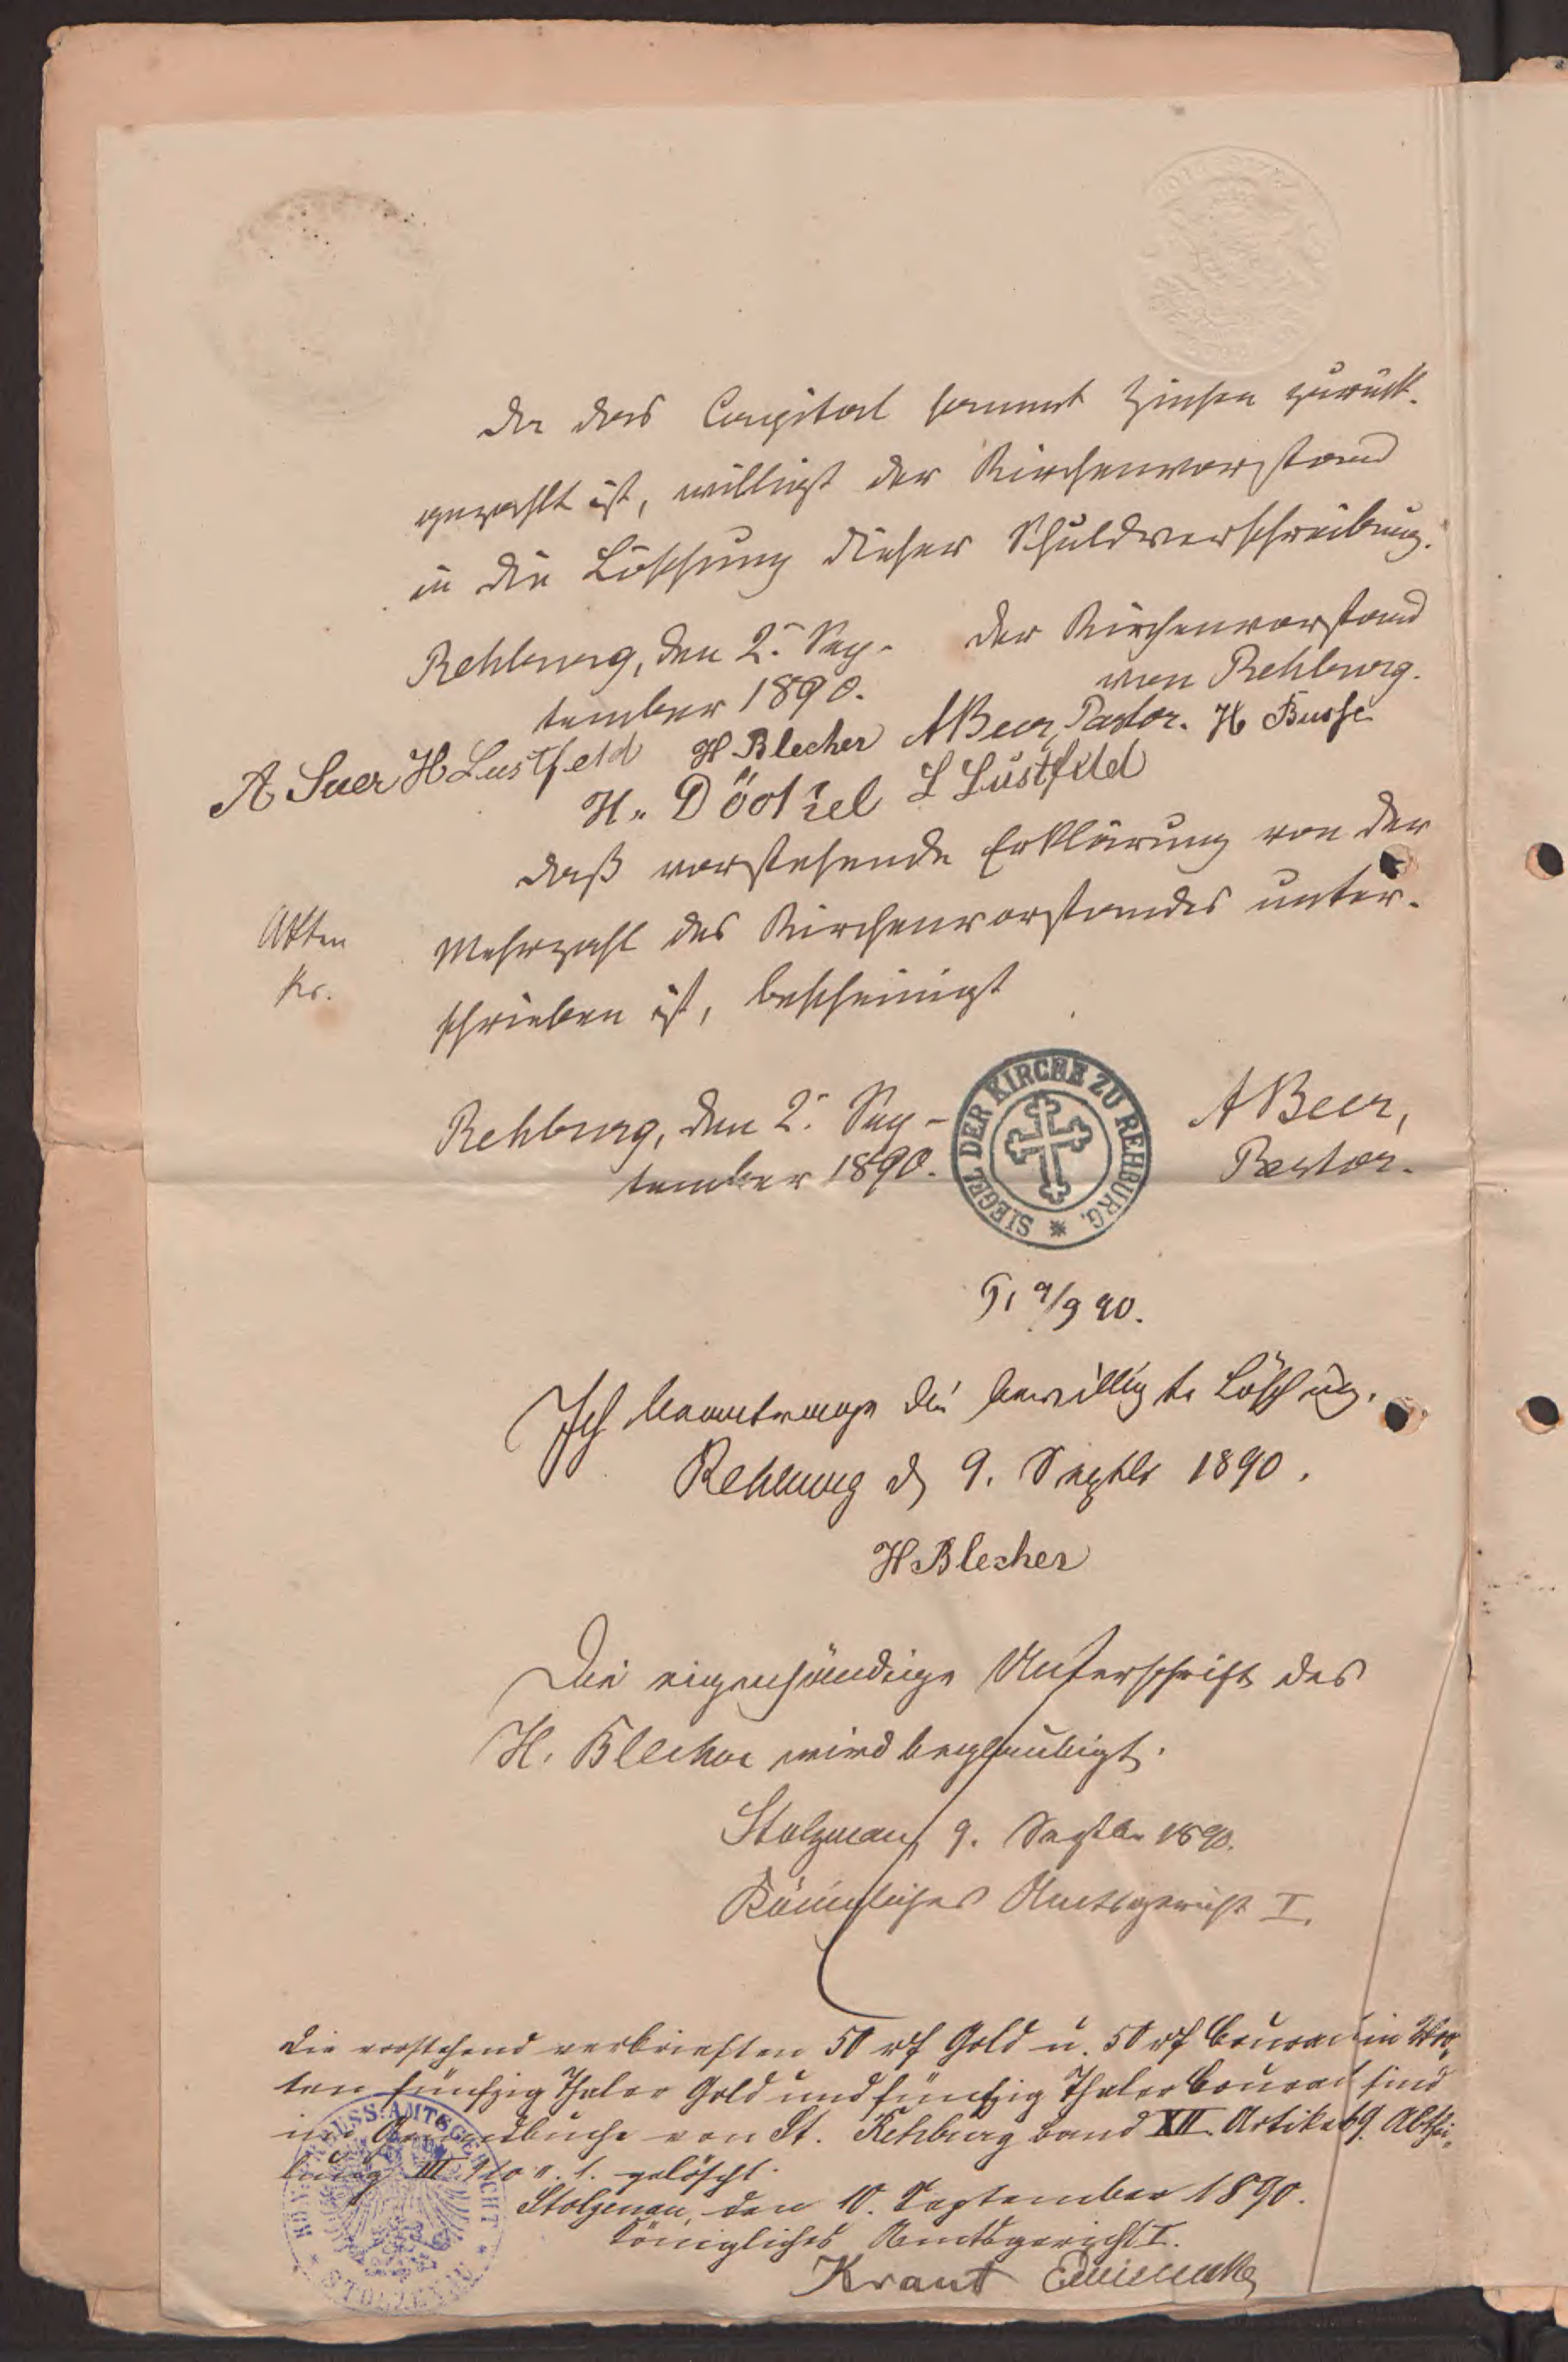 Da das Capital sammt Zinsen zurück-
gezahlt ist, willigt der Kirchenvorstand
in die Löschung dieser Schuldverschreibung.
Rehburg, den 2. Sep-
tember 1890.
Der Kirchenvorstand
von Rehburg.
A Suer H Lustfeld H Blecher ABeer, Pastor. H Busse
H. Döötzel L Lustfeld
Daß vorstehende Erklärung von der
Mehrzahl des Kirchenvorstandes unter-
schrieben ist, bescheinigt
Rehburg, den 2. Sep-
tember 1890.
SIEGEL DER KIRCHE ZU REHBURG.
ABeer,
Pastor.
9/9 90.
Ich beantrage die bewilligte Löschung.
Rehburg d 9. Septbr 1890.
H Blecher
Die eigenhändige Unterschrift des
H. Blecher wird beglaubigt.
Stolzenau, 9. Septbr 1890.
Königliches Amtsgericht I.
Die vorstehend verbrieften 50 rf Gold u. 50 rf Courant in Wor-
ten fünfzig Thaler Gold und fünfzig Thaler Courant sind
im Grundbuche von St. Rehburg Band XII Artikel 69. Abthei-
lung III No 1. gelöscht.
Stolzenau, den 10. September 1890.
Königliches Amtsgericht I.
Kraut
KÖN. PREUSS. AMTSGERICHT * STOLZENAU *